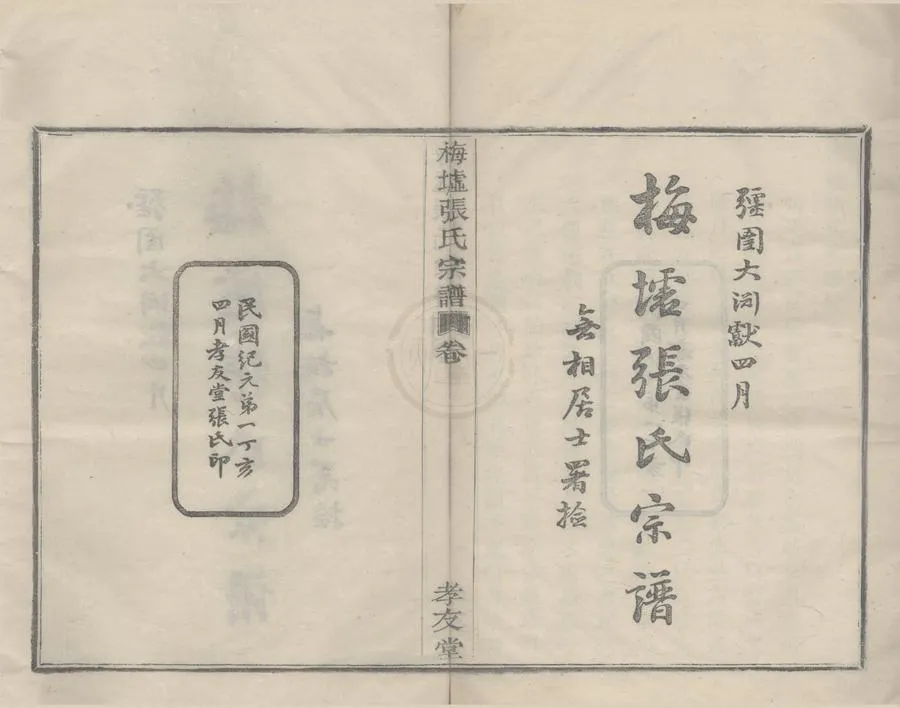 彊圉大渕獻四月
梅墟張氏宗譜
無相居士署撿
梅墟張氏宗譜
卷
孝友堂
民國紀元第一丁亥
四月孝友堂張氏印